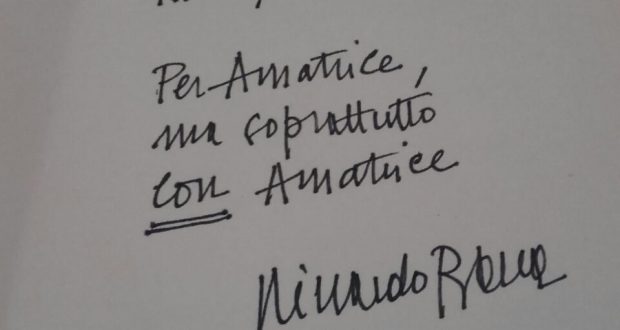 Per Amatrice,
ma soprattutto
con Amatrice
Riccardo